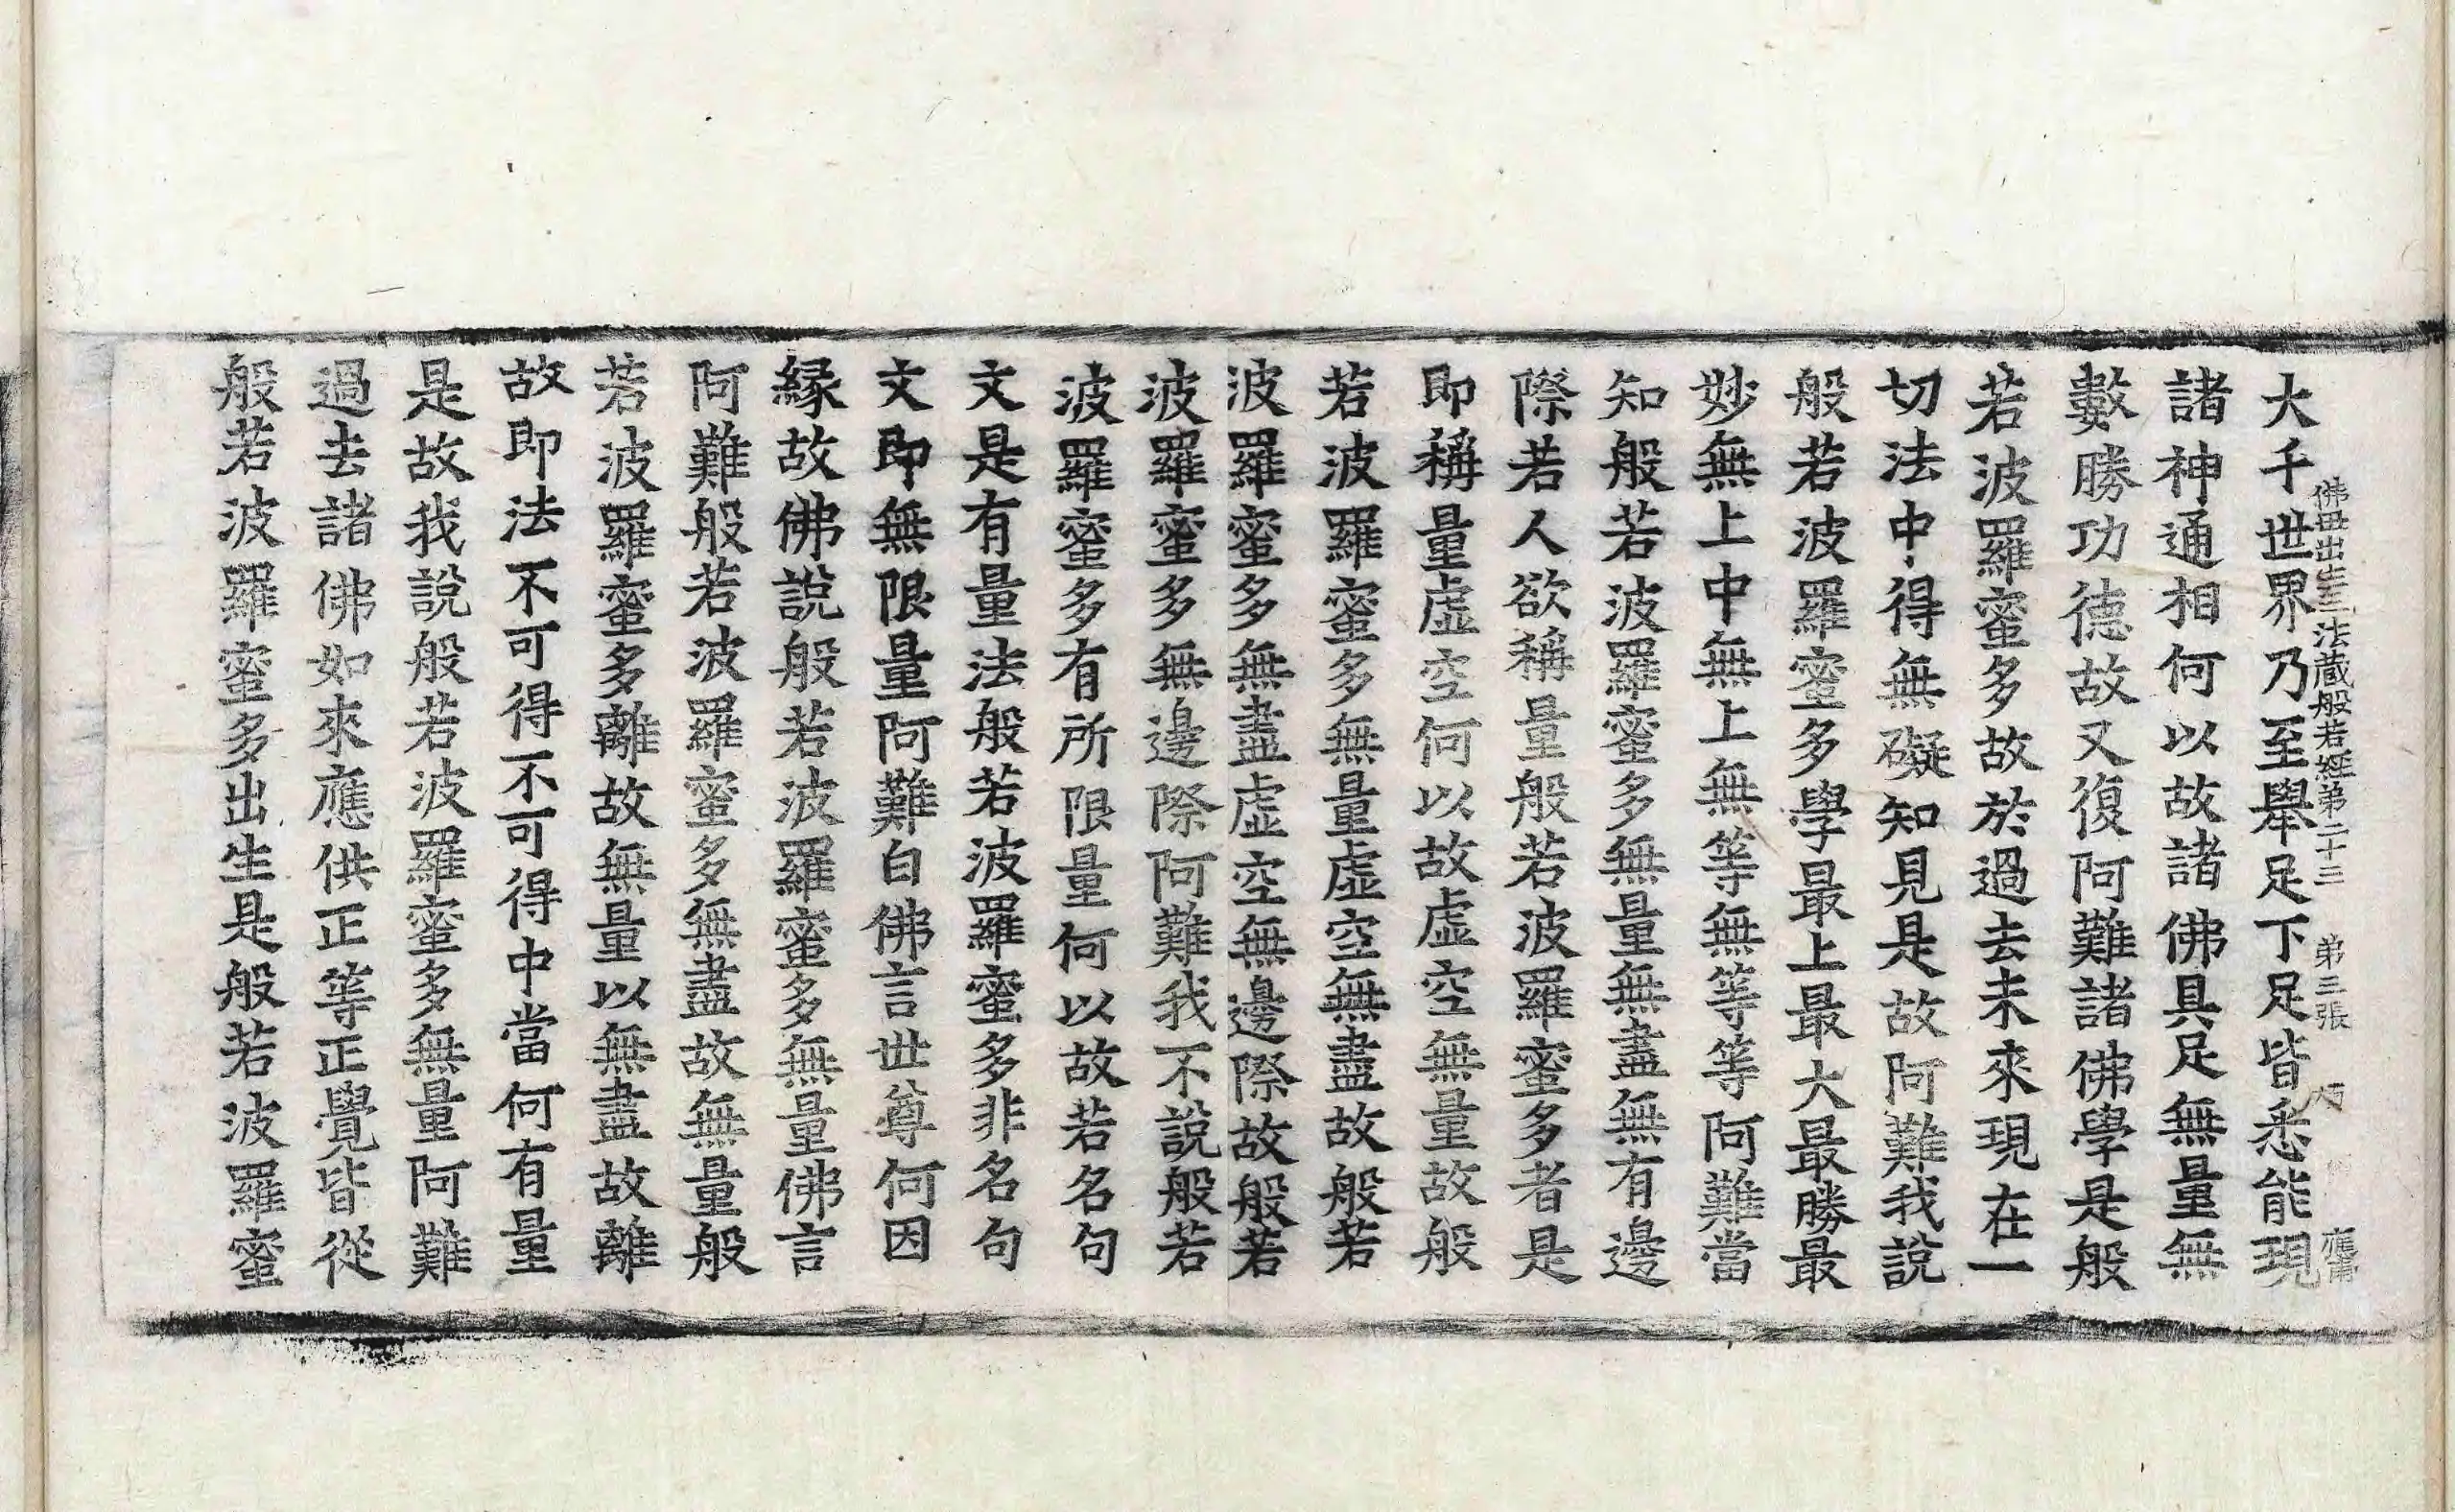 佛毋出生三法藏般若経第二十三 第三張
大千世界乃至舉足下足皆悉能現
諸神通相何以故諸佛具足無量無
數勝功德故又復阿難諸佛學是般
若波羅蜜多故於過去未來現在一
切法中得無礙知見是故阿難我說
般若波羅蜜多學最上最大最勝最
妙無上中無上無等無等等阿難當
知般若波羅蜜多無量無盡無有邊
際若人欲稱量般若波羅蜜多者是
即稱量虛空何以故虛空無量故般
若波羅蜜多無量虛空無盡故般若
波羅蜜多無盡虛空無邊際故般若
波羅蜜多無邊際阿難我不說般若
波羅蜜多有所限量何以故若名句
文是有量法般若波羅蜜多非名句
文即無限量阿難白佛言世尊何因
緣故佛說般若波羅蜜多無量佛言
阿難般若波羅蜜多無盡故無量般
若波羅蜜多離故無量以無盡故離
故即法不可得不可得中當何有量
是故我說般若波羅蜜多無量阿難
過去諸佛如來應供正等正覺皆從
般若波羅蜜多出生是般若波羅蜜